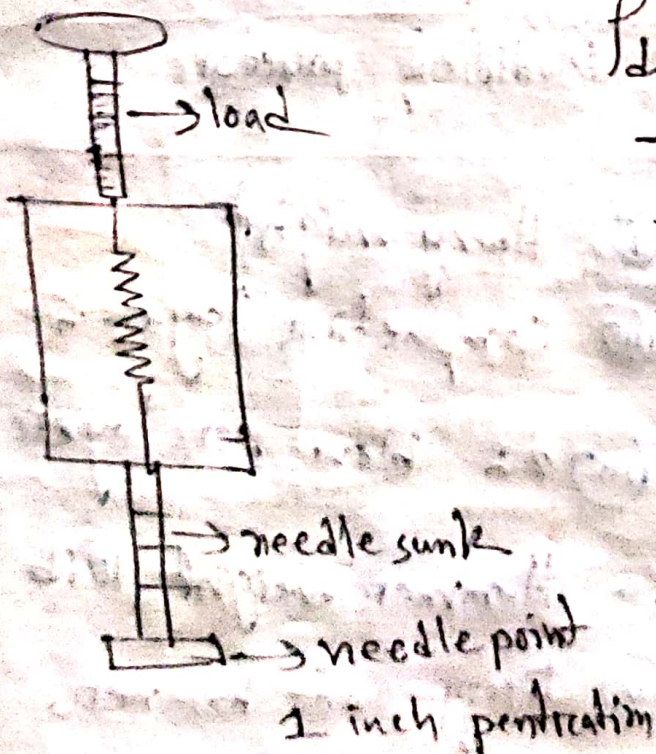 load
needle sunk
needle point
1 inch pentreation